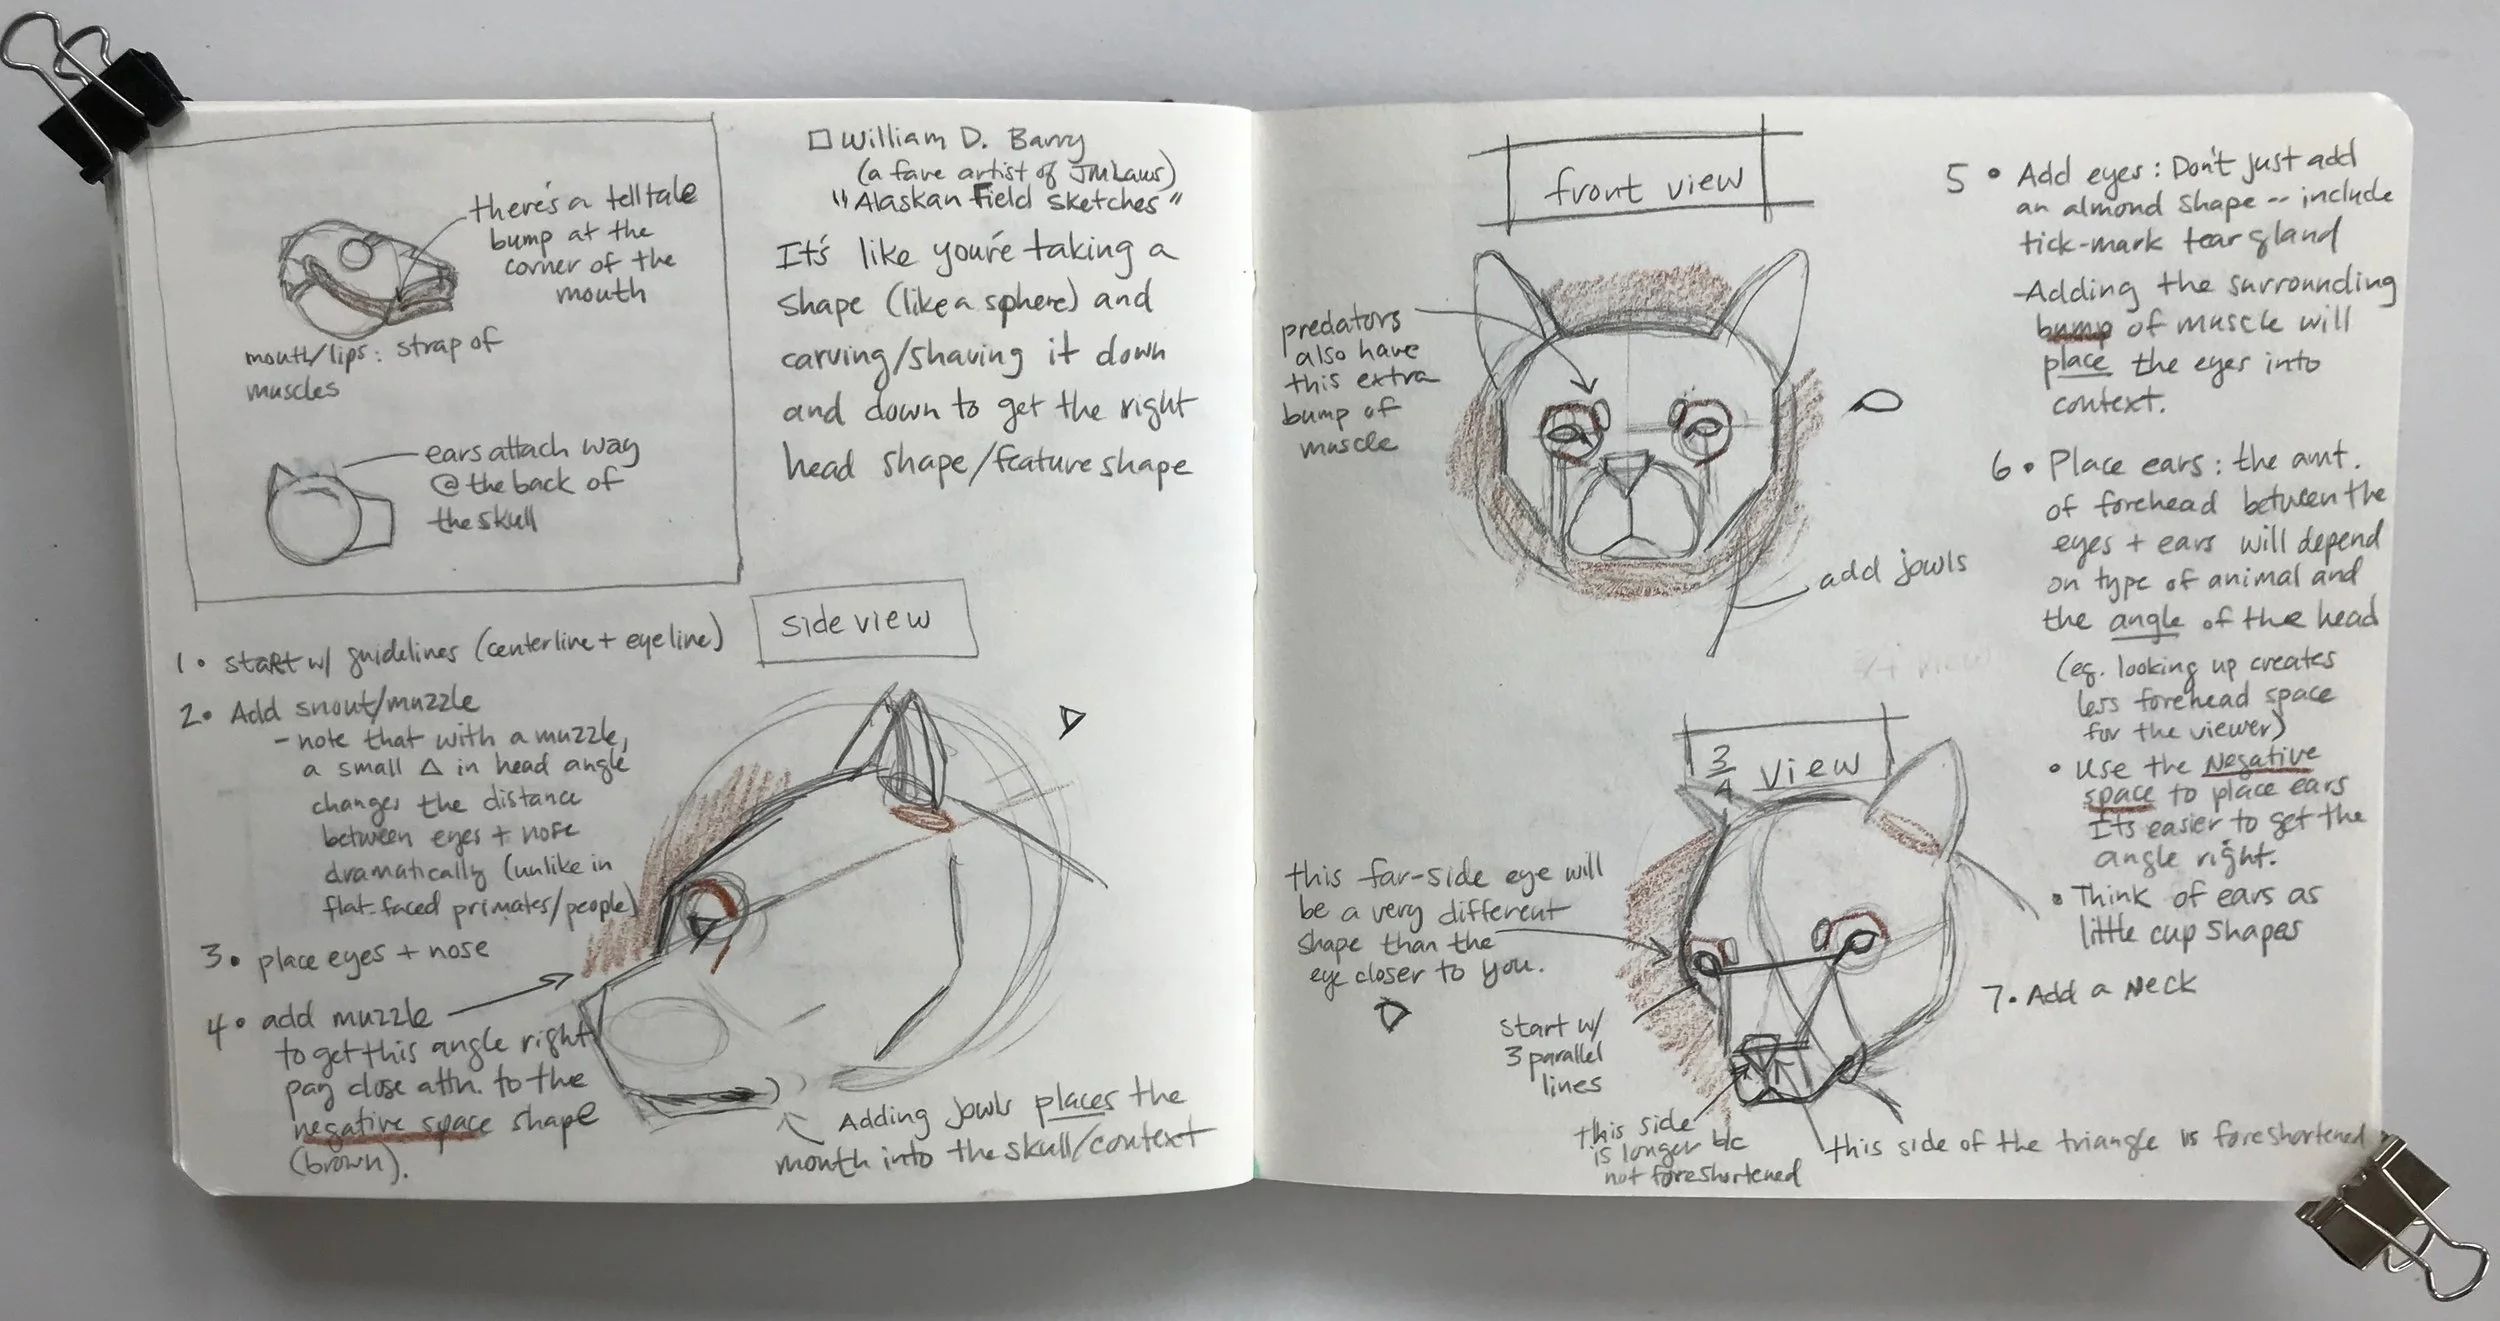 there's a telltale
bump at the
corner of the
mouth
mouth/lips: strap of
muscles
ears attach way
@ the back of
the skull
William D. Barry
(a fave artist of JMLaws)
"Alaskan Field Sketches"
It's like you're taking a
shape (like a sphere) and
carving/shaving it down
and down to get the right
head shape/feature shape
side view
1 • start w/ guidelines (centerline + eyeline)
2 • Add snout/muzzle
- note that with a muzzle,
a small Δ in head angle
changes the distance
between eyes + nose
dramatically (unlike in
flat-faced primates/people)
3 • place eyes + nose
4 • add muzzle
to get this angle right
pay close attn. to the
negative space shape
(brown).
Adding jowls places the
mouth into the skull/context
front view
predators
also have
this extra
bump of
muscle
add jowls
3/4 view
this far-side eye will
be a very different
shape than the
eye closer to you.
start w/
3 parallel
lines
this side
is longer b/c
not foreshortened
this side of the triangle is foreshortened
5 • Add eyes: Don't just add
an almond shape -- include
tick-mark tear gland
- Adding the surrounding
bump of muscle will
place the eyes into
context.
6 • Place ears: the amt.
of forehead between the
eyes + ears will depend
on type of animal and
the angle of the head
(eg. looking up creates
less forehead space
for the viewer)
• Use the Negative
space to place ears
It's easier to get the
angle right.
• Think of ears as
little cup shapes
7 • Add a Neck